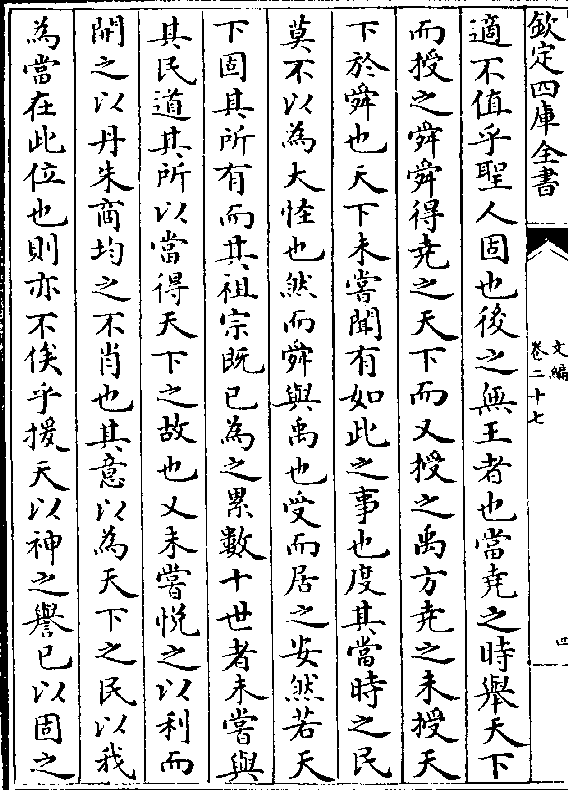 欽定四庫全書
文編
卷二十七
四
適不值乎聖人固也後之無王者也當堯之時舉天下
而授之舜舜得堯之天下而又授之禹方堯之未授天
下於舜也天下未嘗聞有如此之事也度其當時之民
莫不以為大怪也然而舜與禹也受而居之安然若天
下固其所有而其祖宗既已為之累數十世者未嘗與
其民道其所以當得天下之故也又未嘗悅之以利而
開之以丹朱商均之不肖也其意以為天下之民以我
為當在此位也則亦不俟乎援天以神之譽已以固之